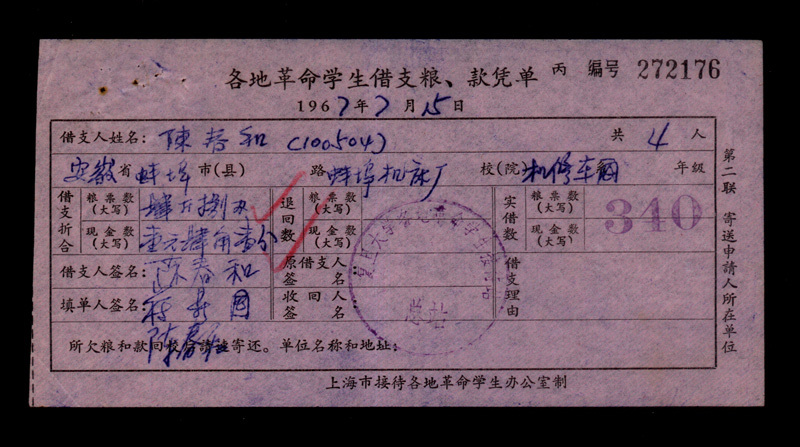 各地革命学生借支粮、款凭单 丙 编号 272176
1967年7月15日
借支人姓名：陳春和(100504) 共4人
安徽省蚌埠市(县) 路蚌埠机床厂 校(院)机修车间 年級
借支折合 粮票数(大写) 肆斤捌两 退回数 粮票数(大写) 实借数 粮票数(大写)
现金数(大写) 壹元肆角壹分 现金数(大写) 现金数(大写) 340
借支人签名：陈春和 原借支人签名 借支理由
填单人签名： 收回人签名
总站
所欠粮和款回校后請速寄还。单位名称和地址：
第二联 寄送申請人所在单位
上海市接待各地革命学生办公室制